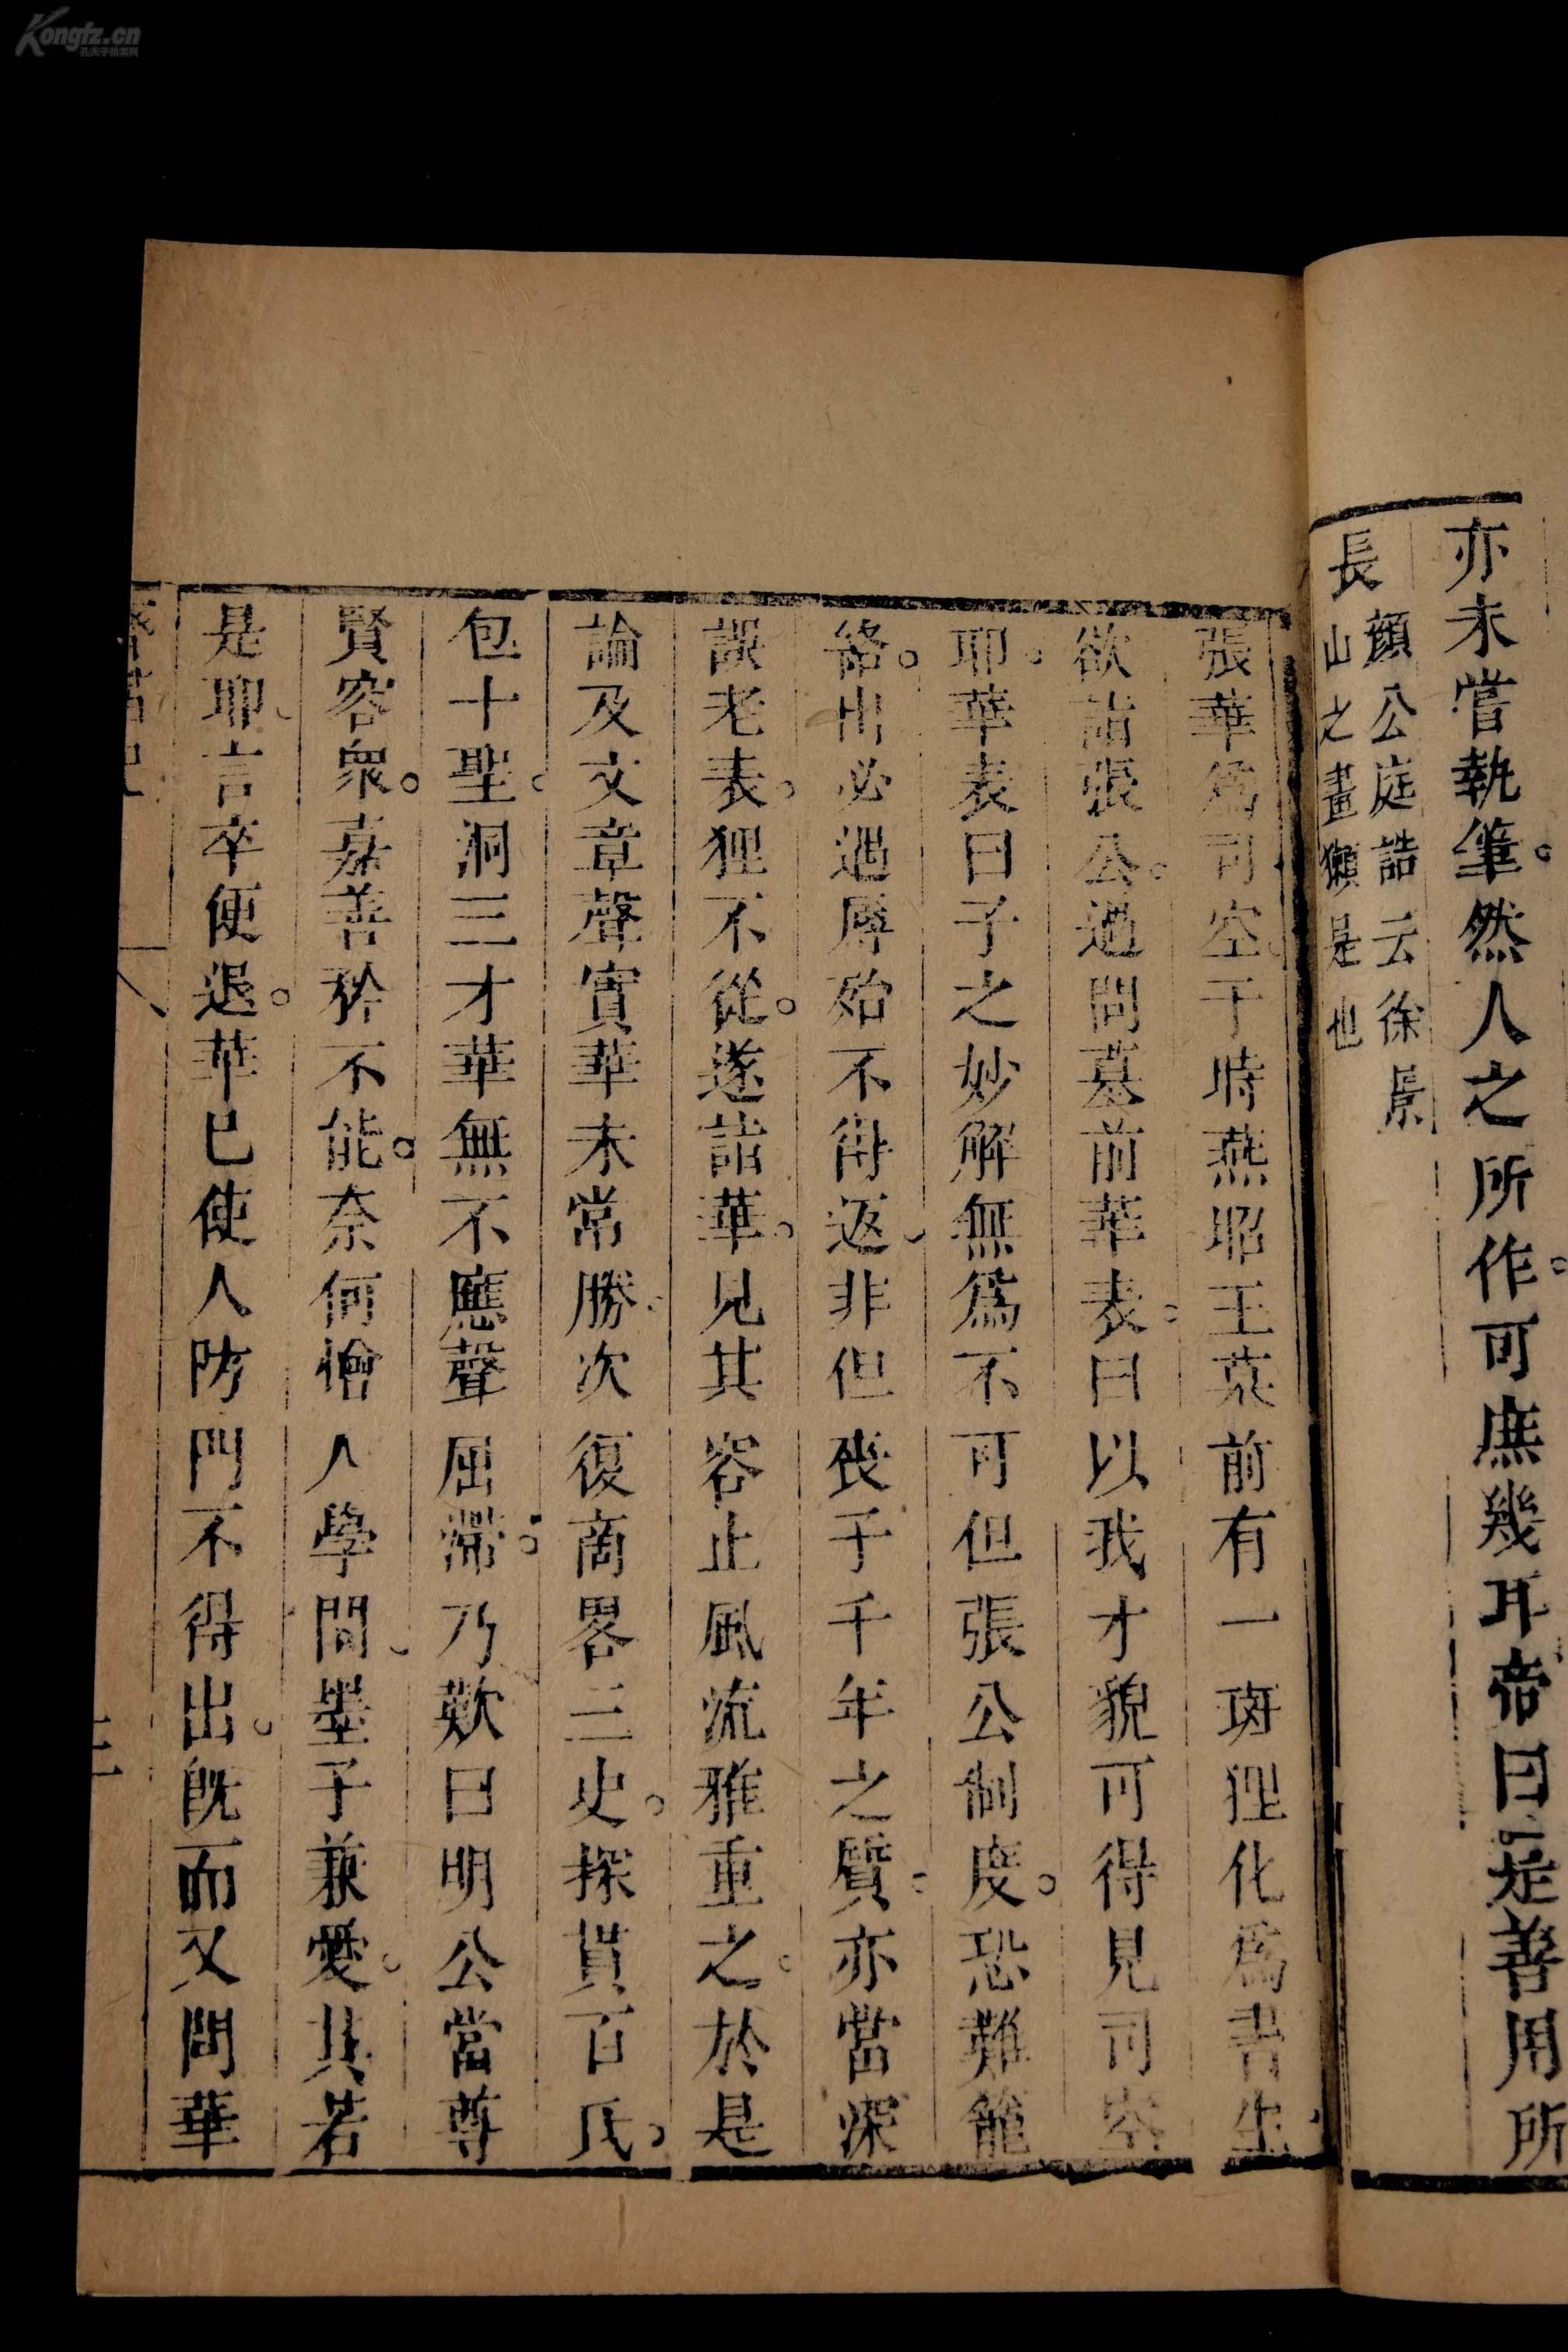 亦未嘗執筆。然人之所作。可庶幾耳。帝曰。是善用所
長顏公庭誥云徐景
山之畫獺是也
張華爲司空。于時燕昭王墓前有一斑狸化爲書生。
欲詣張公。過問墓前華表。曰以我才貌可得見司空
耶。華表曰子之妙解無爲不可但張公制度。恐難籠
絡。出必遇辱殆不得返。非但喪于千年之質。亦當深
誤老表。狸不從。遂詣華。見其容止風流雅重之。於是
論及文章聲實華未常勝。次復商畧三史。探貫百氏。
包十聖。洞三才華無不應聲屈滯。乃歎曰明公當尊
賢容衆。嘉善矜不能。奈何憎人學問。墨子兼愛。其若
是耶。言卒便退。華已使人防門不得出。旣而又問華
三
Kongfz.cn
孔夫子旧书网